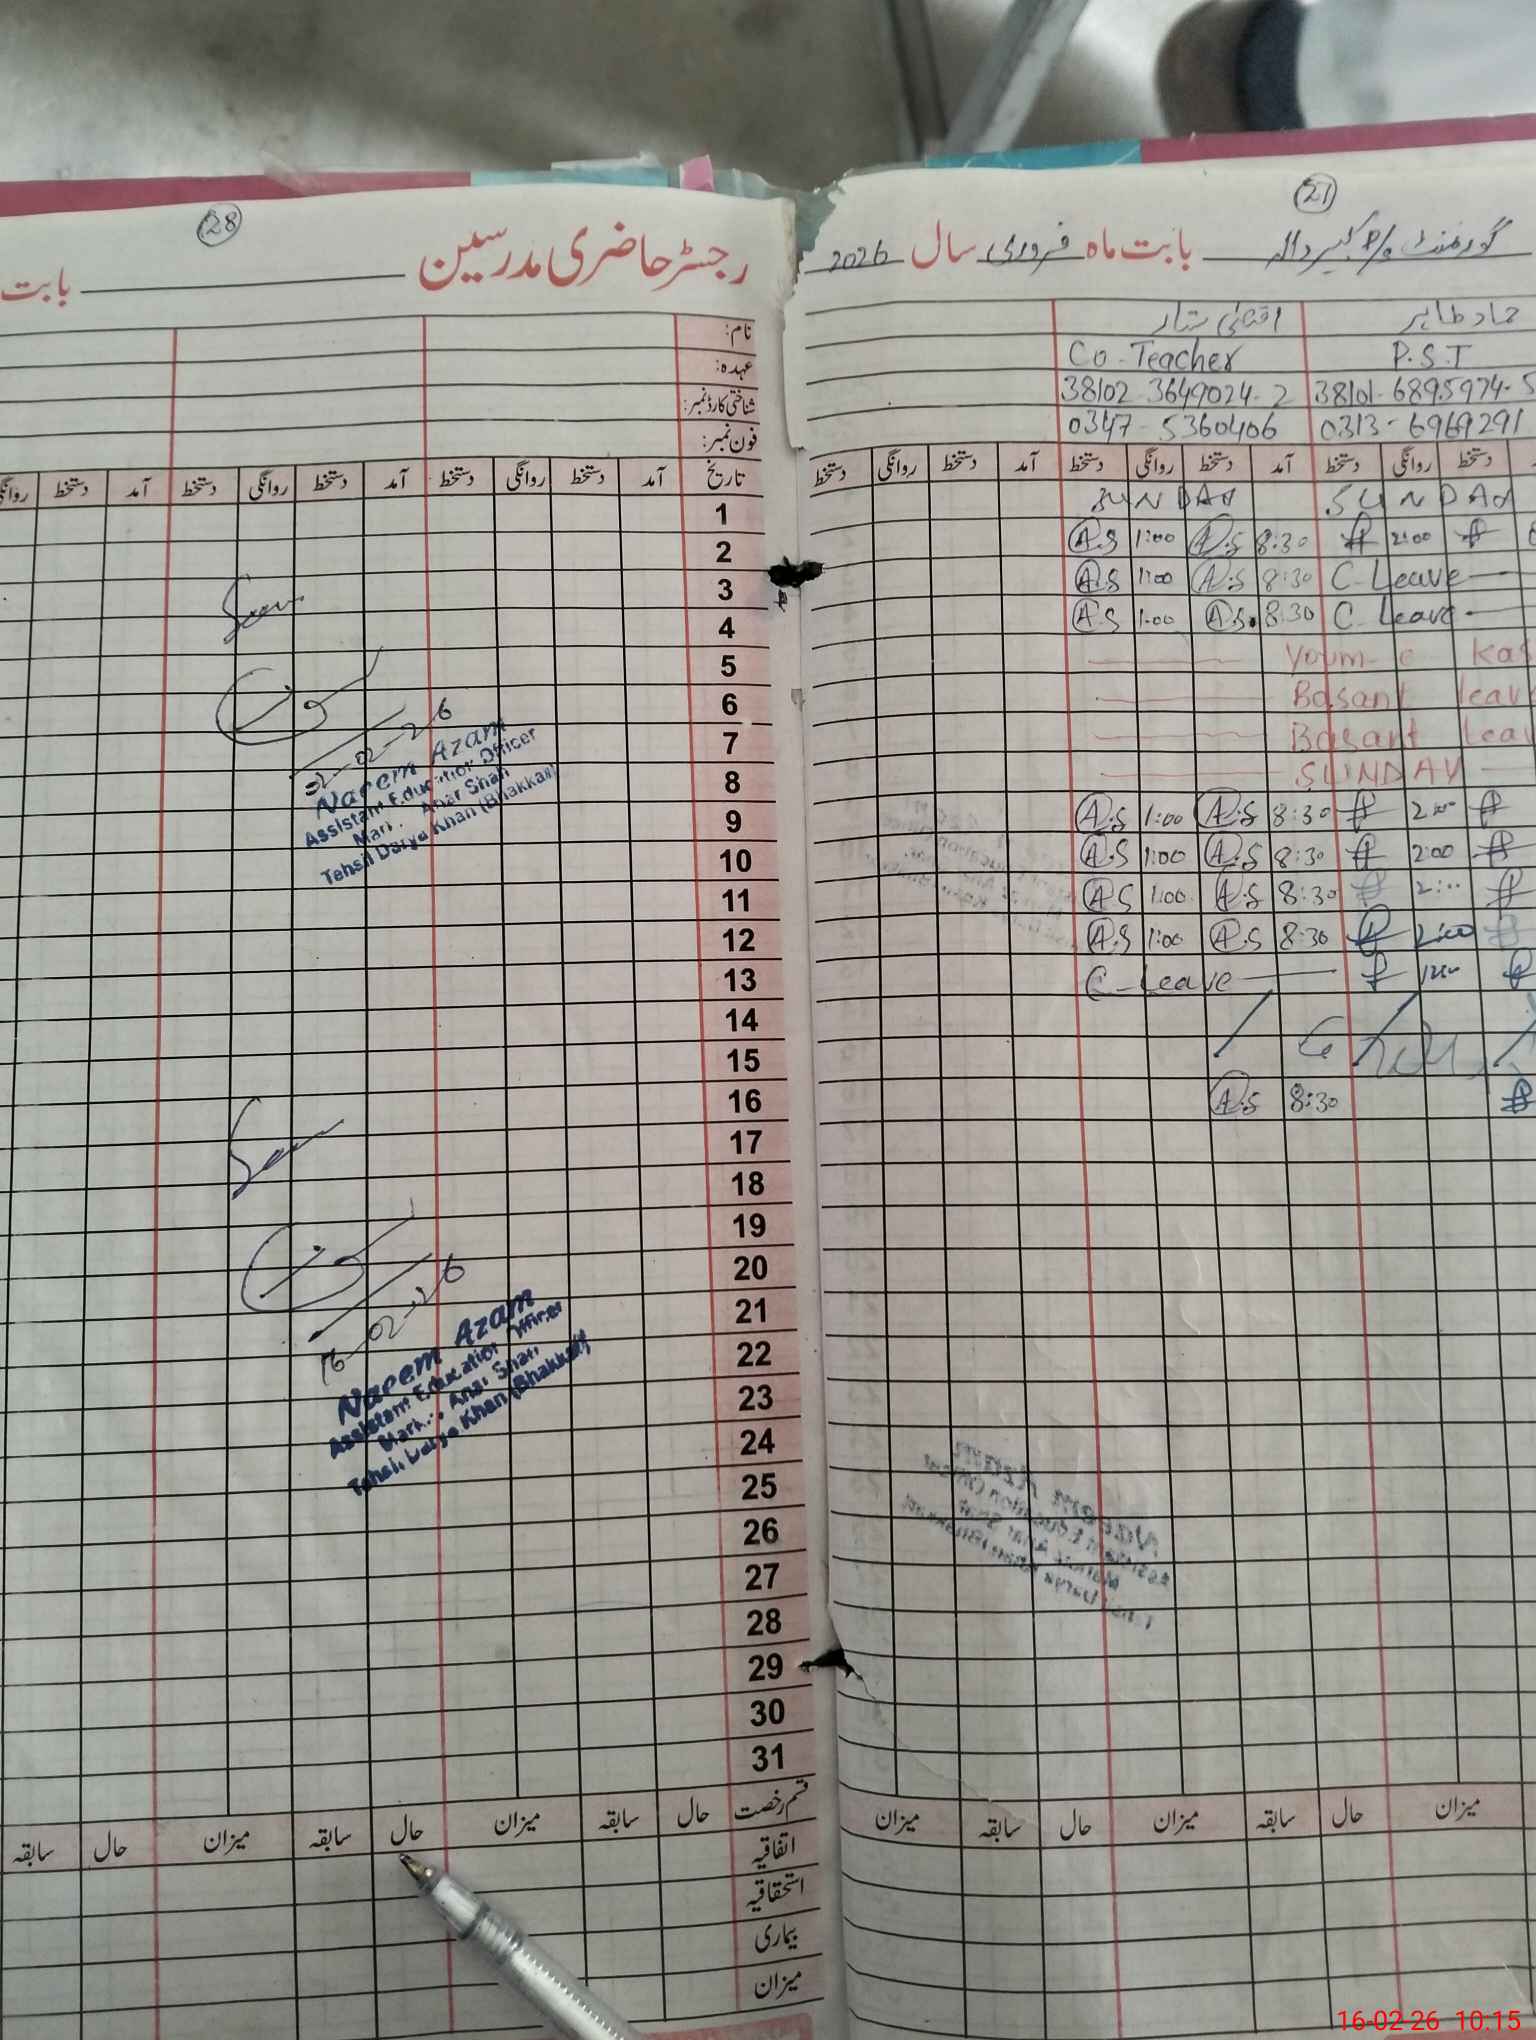 28
رجسٹر حاضری مدرسین بابت
نام:
عہدہ:
شناختی کارڈ نمبر:
فون نمبر:
تاریخ آمد دستخط روانگی دستخط آمد دستخط روانگی دستخط آمد دستخط روانگی
1
2
3
4
5
6
7
8
9
10
11
12
13
14
15
16
17
18
19
20
21
22
23
24
25
26
27
28
29
30
31
Seen
02-02-26
Naeem Azam
Assistant Education Officer
Anar Shah
Tehsil Darya Khan (Bhakkar)
Seen
16-02-26
Naeem Azam
Assistant Education Officer
Anar Shah
Tehsil Darya Khan (Bhakkar)
قسم رخصت حال سابقہ میزان حال سابقہ میزان حال سابقہ
اتفاقیہ
استحقاقیہ
بیماری
میزان
21
گورنمنٹ بابت ماہ فروری سال 2026
حماد طاہر ستار
Co-Teacher P.S.T
38102-3649024-2 38101-6895974-5
0347-5360406 0313-6969291
دستخط روانگی دستخط آمد دستخط روانگی دستخط آمد دستخط روانگی دستخط
SUNDAY SUNDAY
A.S 1:00 A.S 8:30 2:00
A.S 1:00 A.S 8:30 C-Leave
A.S 1:00 A.S. 8:30 C-Leave
Youm-e Kas
Basant leav
Basant Leav
SUNDAY
A.S 1:00 A.S 8:30 2:00
A.S 1:00 A.S 8:30 2:00
A.S 1:00 A.S 8:30 2:00
A.S 1:00 A.S 8:30 2:00
C-Leave
A.S 8:30
میزان سابقہ حال میزان سابقہ حال میزان
16-02-26 10:15